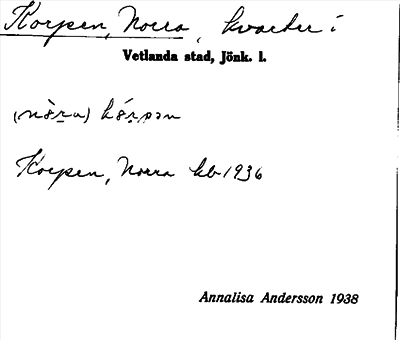 Korpen, Norra, kvarter i
Vetlanda stad, Jönk. l.
(nòra) kórpən
Korpen, Norra kb 1936
Annalisa Andersson 1938